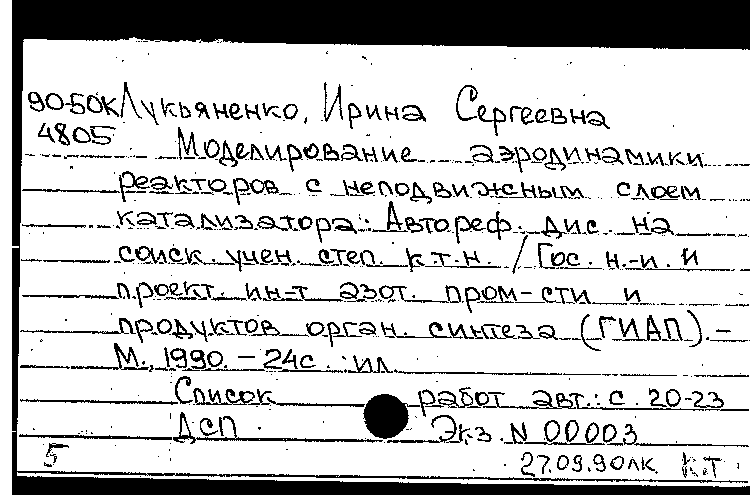 90-50К Лукьяненко, Ирина Сергеевна
4805 Моделирование аэродинамики
реакторов с неподвижным слоем
катализатора: Автореф. дис. на
соиск. учен. степ. к.т.н. / Гос. н.-и. и
проект. ин-т азот. пром-сти и
продуктов орган. синтеза (ГИАП). -
М., 1990. - 24с. : ил.
Список работ авт.: с. 20-23
ДСП. Экз. N 00003
5 27.09.90лк К.Т